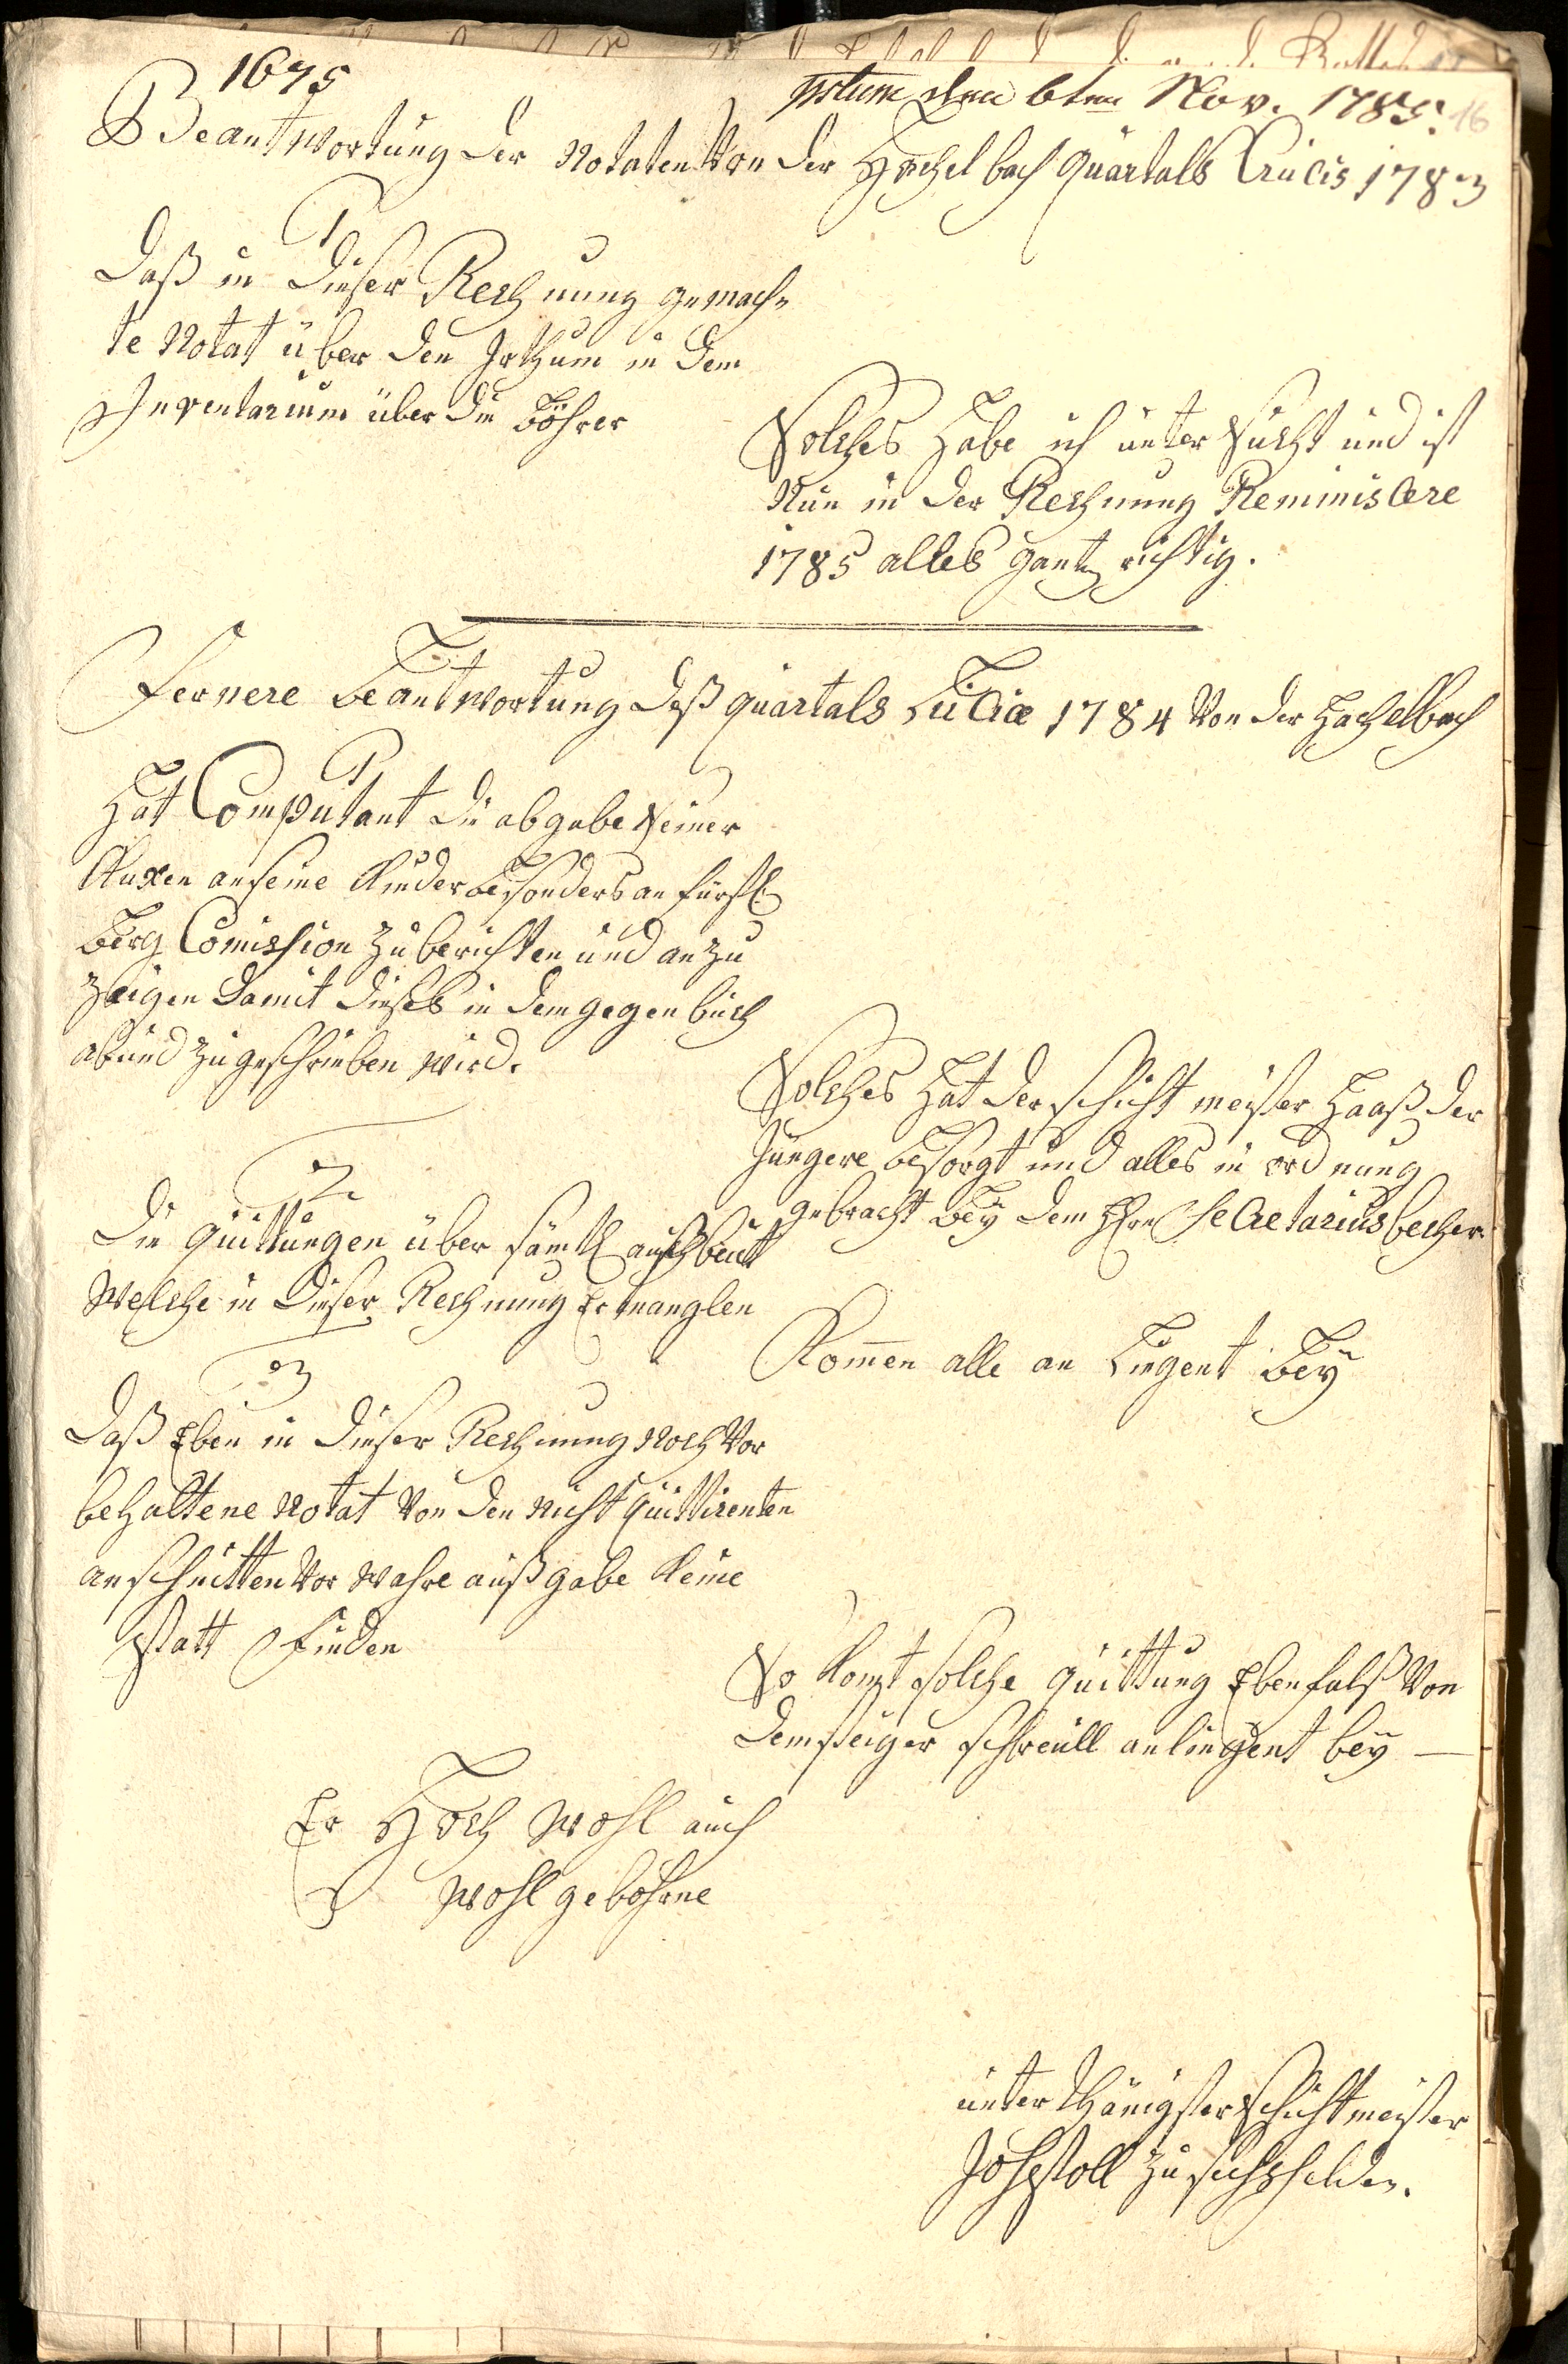 1675
pstum den 6ten Nov. 1785.
16
Beantwortung der Notaten Von der Hachelbach quartals Crucis 1783
1
Daß in dieser Rechnung gemach-
te Notat über den Irthum in dem
Inventarium über die Böhrer
Solches habe ich untersucht und ist
Nun in der Rechnung Reminiscere
1785 alles gantz richtig.
Fernere Beantwortung deß quartals Luciæ 1784 Von der Hachelbach
1
Hat Computant die abgabe seiner
Kuxen an seine Kinder besonders an fürstl.
Berg Comission zu berichten und an zu
zeigen damit dieses in dem gegen buch
ab und zu geschrieben wird.
Solches hat der schicht meister Haaß der
Jüngere besorgt und alles in ordnung
gebracht bey dem Hrn Secretarius becher
2
Die quittungen über sämtl. außbeut
Welche in dieser Rechnung Ermanglen
Komen alle an Liegent bey
3
Daß Eben in dieser Rechnung Noch Vor
behaltene Notat Von den Nicht quittirenten
anschnitten Vor Wahre außgabe keine
statt finden
So komt solche quittung Ebenfalß Von
dem steiger schreull anliegent bey
Er Hoch Wohl auch
Wohl gebohrne
unter thänigster schichtmeister
Joh stoll zu sechshelden.